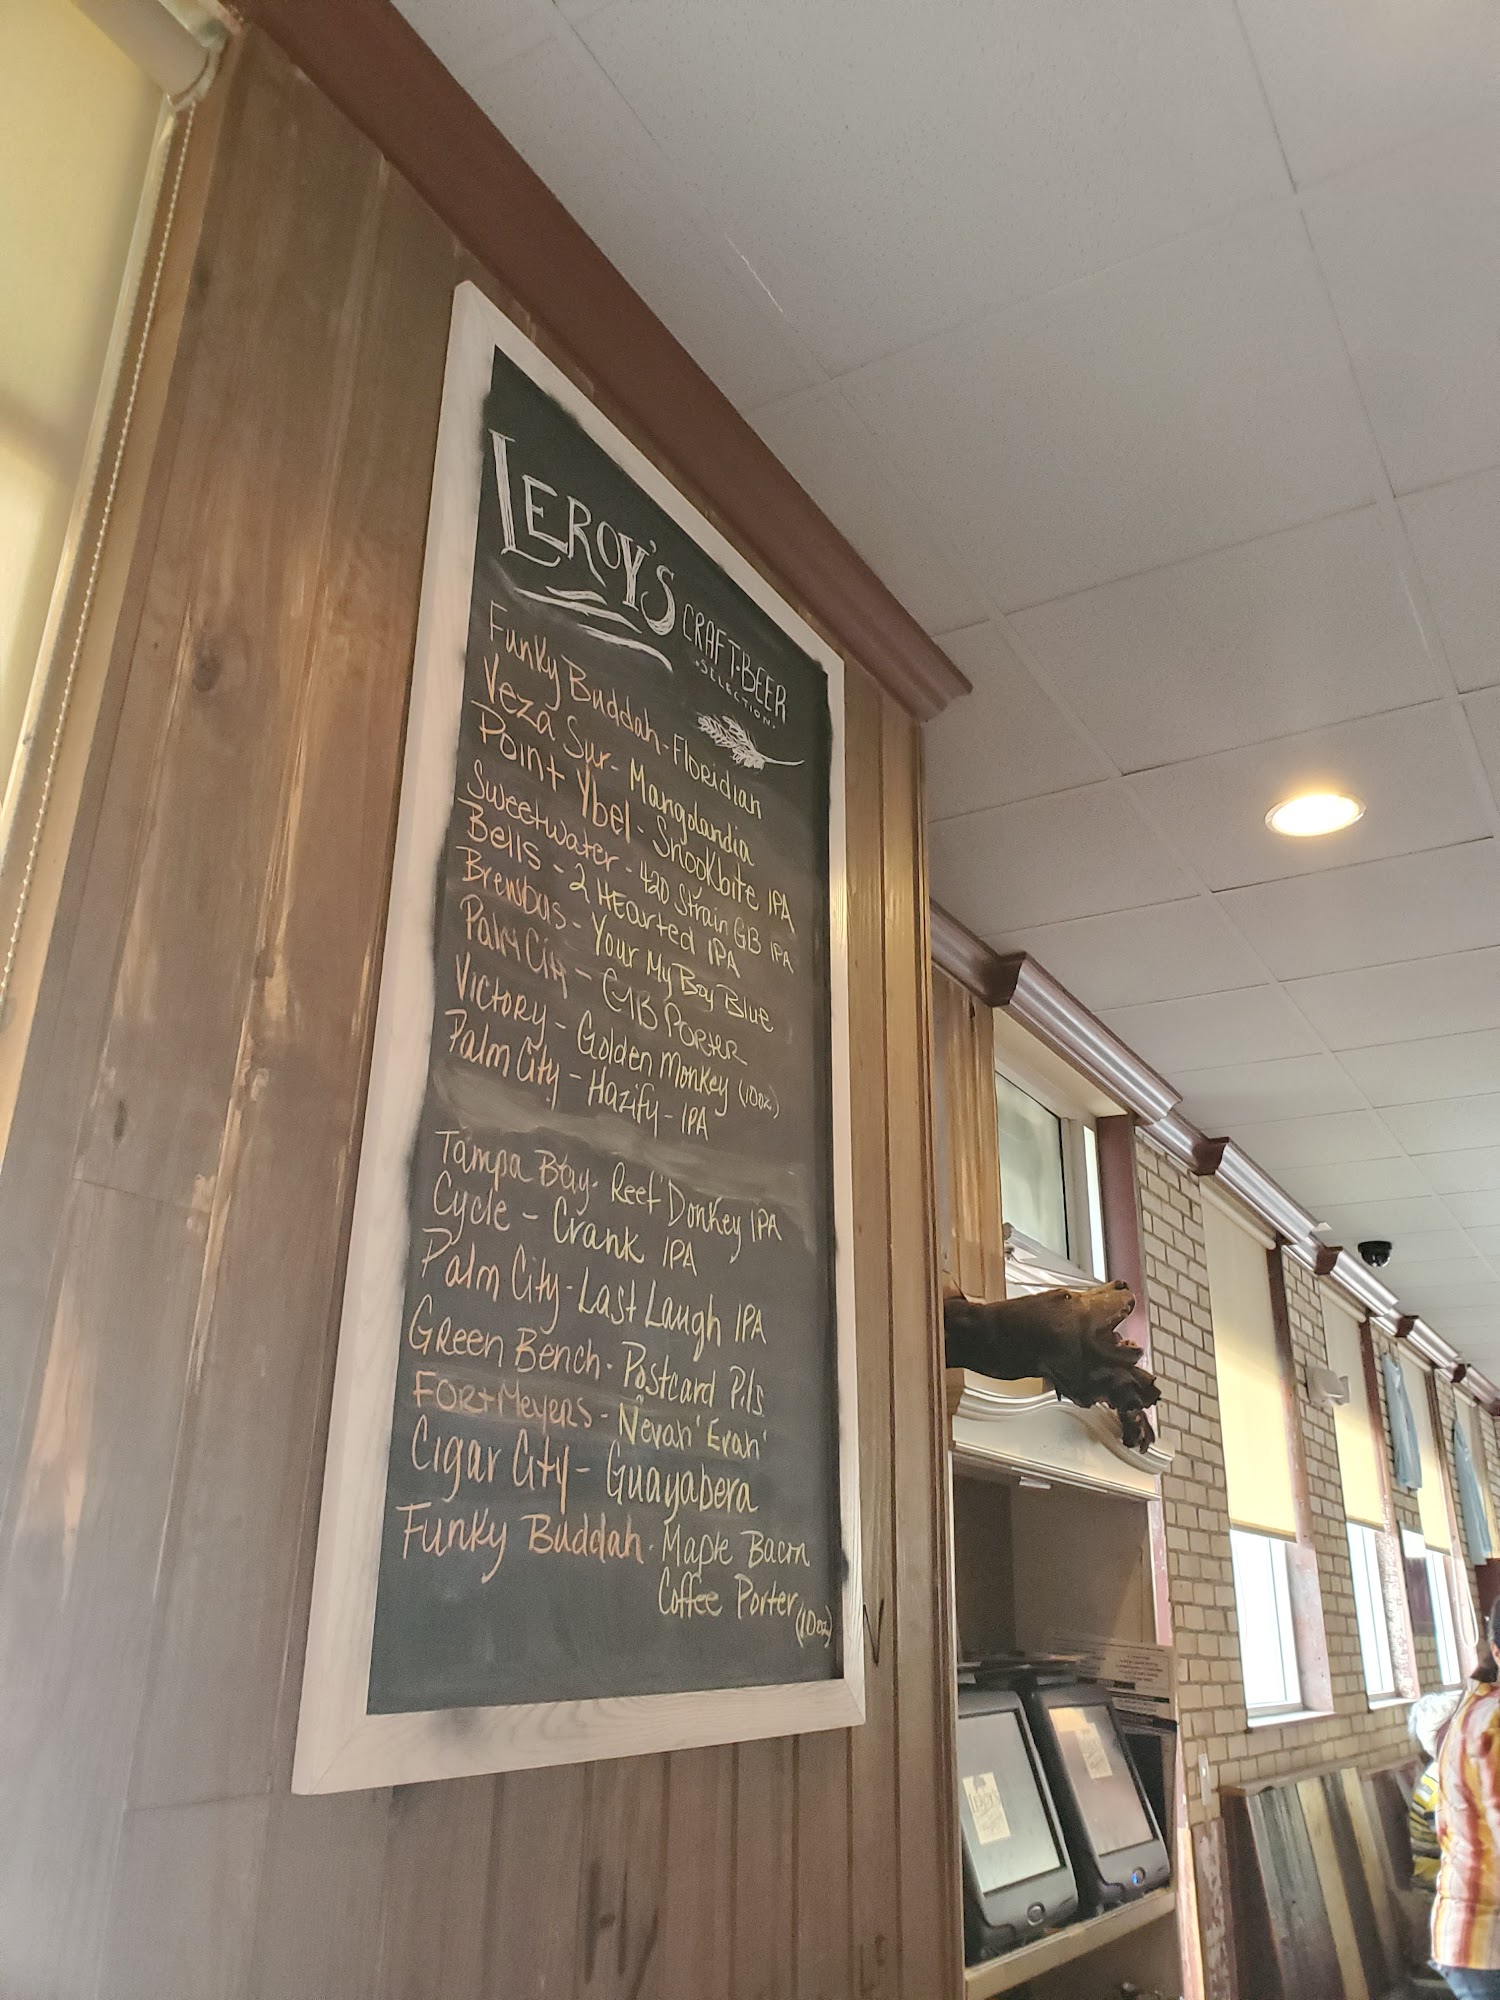 LEROY'S
CRAFT·BEER
·SELECTION·
Funky Buddah - Floridian
Veza Sur - Mangolandia
Point Ybel - Snookbite IPA
Sweetwater - 420 Strain GB IPA
Bells - 2 HEarted IPA
Brewbus - Your My Boy Blue
Palm City - GMB Porter
Victory - Golden Monkey (10oz.)
Palm City - Hazify - IPA
Tampa Bay - Reef Donkey IPA
Cycle - Crank IPA
Palm City - Last Laugh IPA
Green Bench - Postcard Pils
Fort Meyers - Nevah' Evah'
Cigar City - Guayabera
Funky Buddah - Maple Bacon
Coffee Porter (10oz)